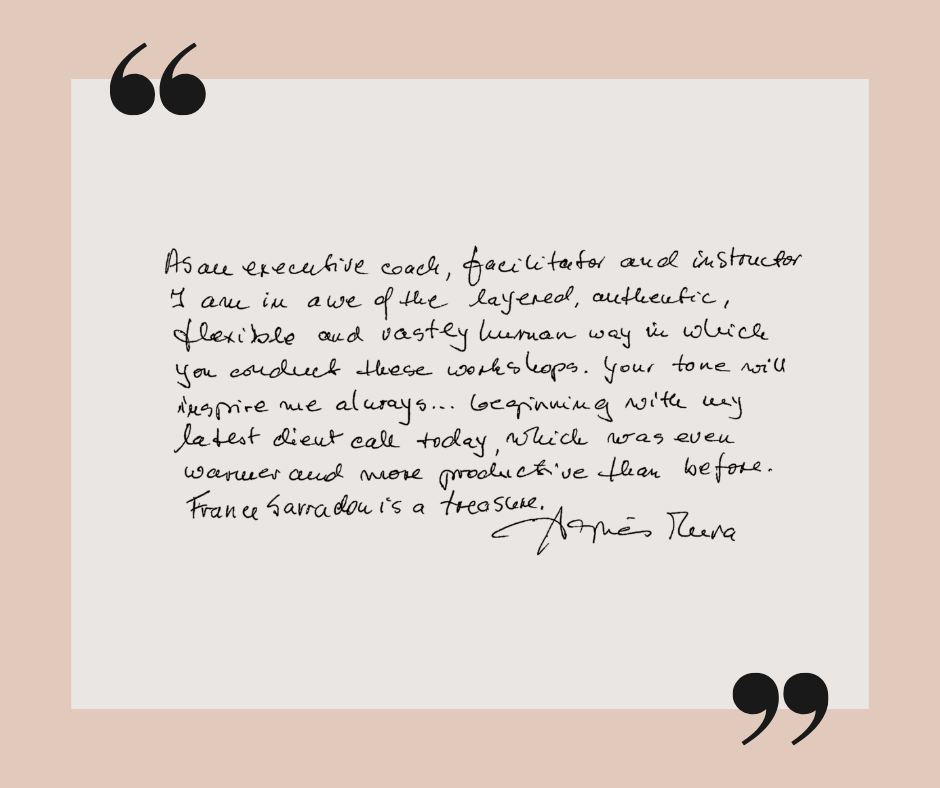 “
As an executive coach, facilitator and instructor
I am in awe of the layered, authentic,
flexible and vastly human way in which
you conduct these workshops. Your tone will
inspire me always... beginning with my
latest client call today, which was even
warmer and more productive than before.
France Sarradou is a treasure.
Agnès Mura
”